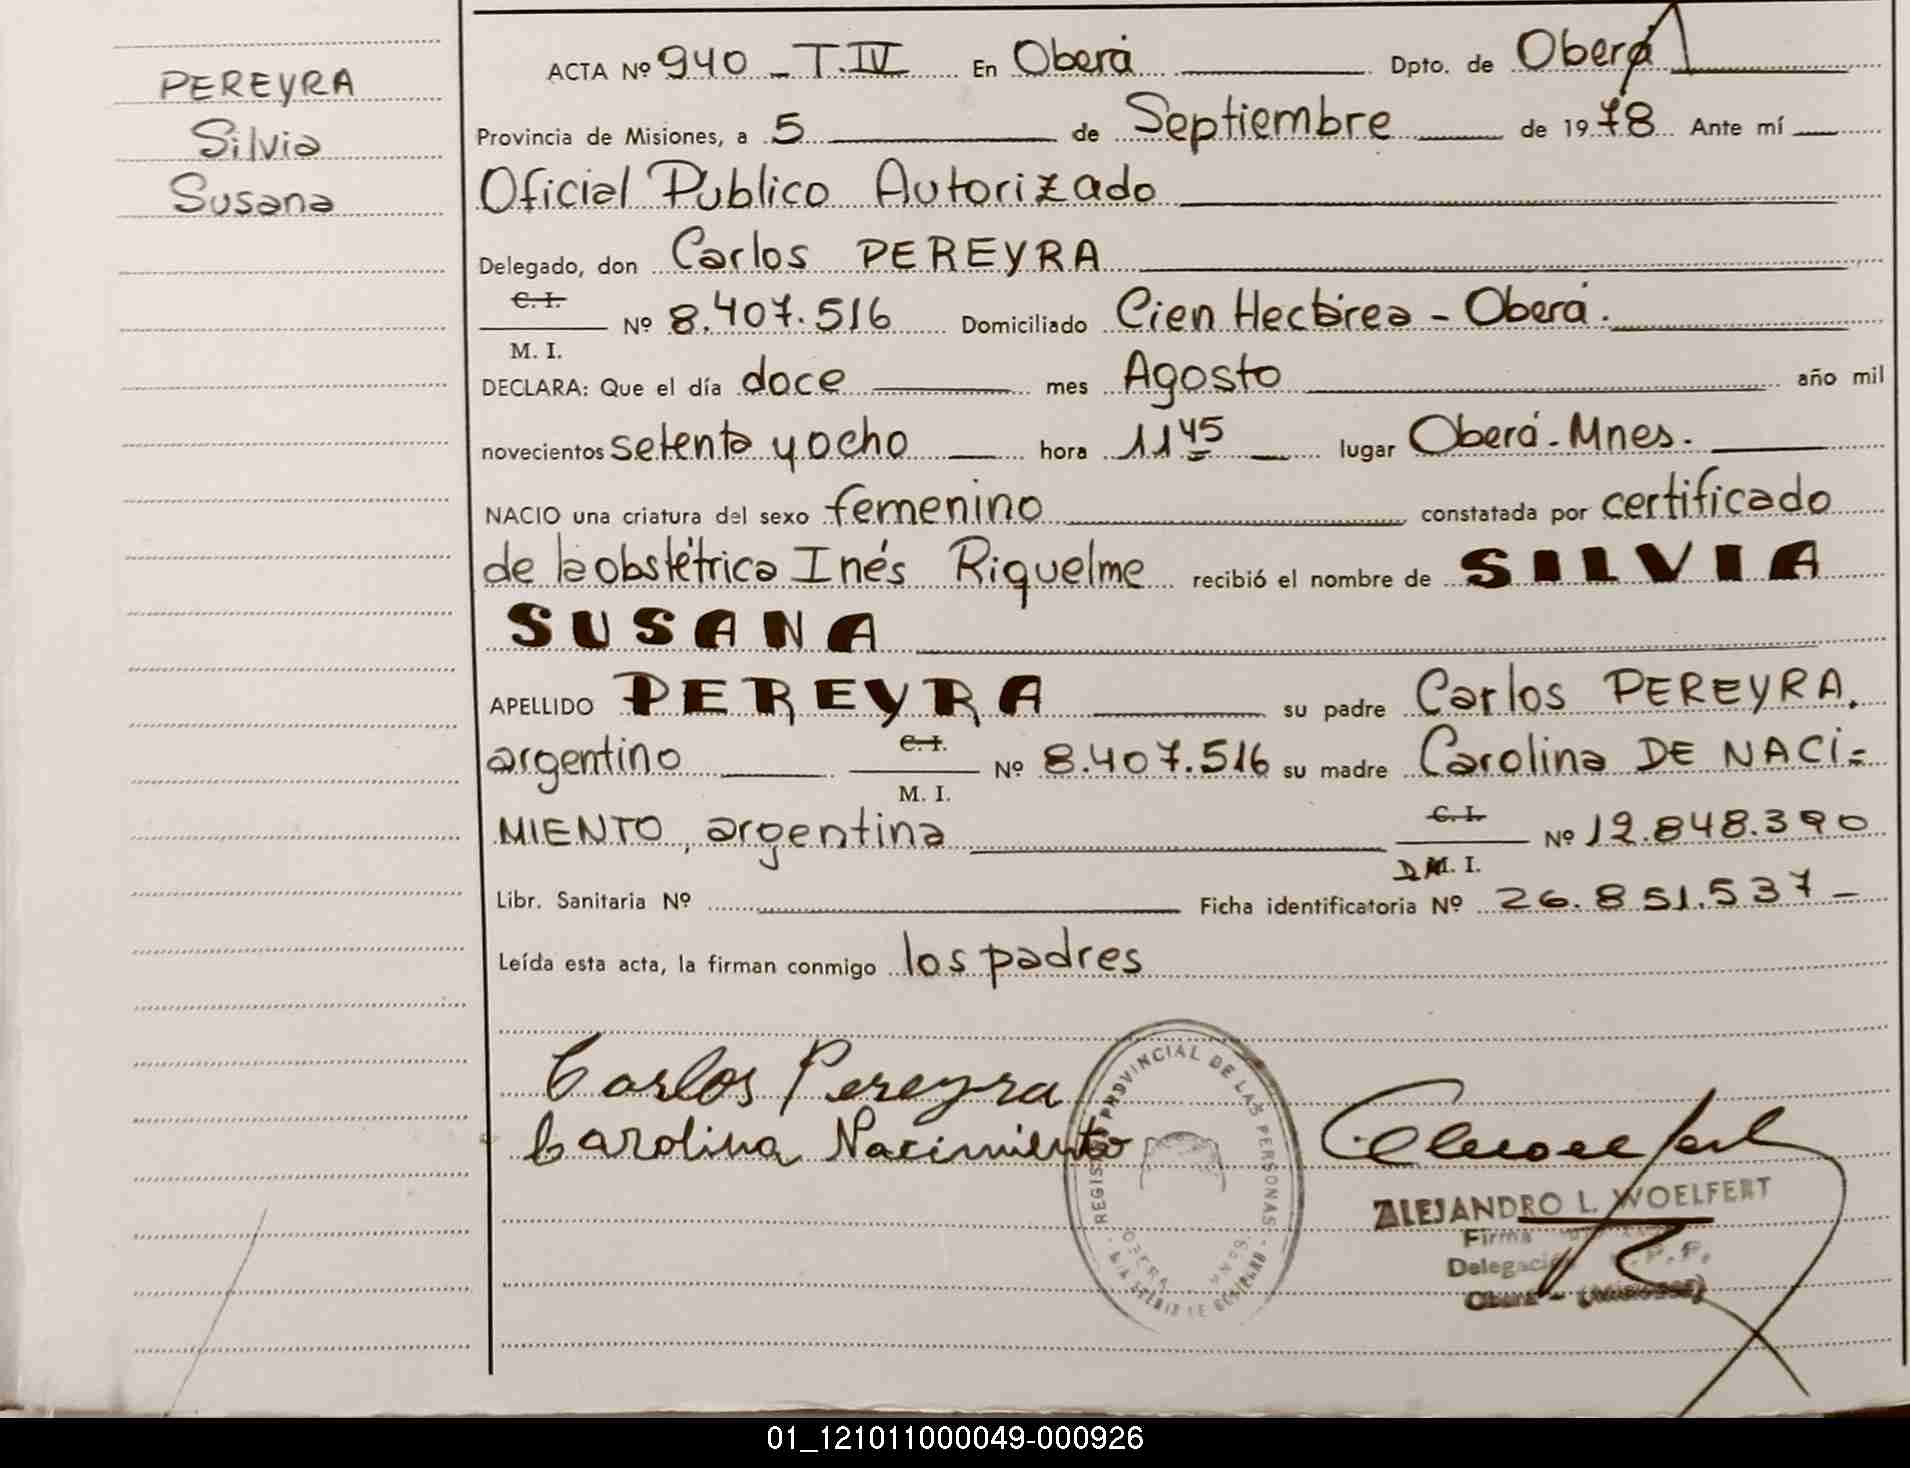 PEREYRA
Silvia
Susana
ACTA Nº 940 - T.IV En Oberá Dpto. de Oberá
Provincia de Misiones, a 5 de Septiembre de 1978 Ante mí
Oficial Publico Autorizado
Delegado, don Carlos PEREYRA
C. I.
Nº 8.407.516 Domiciliado Cien Hectárea - Oberá.
M. I.
DECLARA: Que el día doce mes Agosto año mil
novecientos setenta y ocho hora 11 45 lugar Oberá - Mnes.
NACIO una criatura del sexo femenino constatada por certificado
de la obstétrica Inés Riquelme recibió el nombre de SILVIA
SUSANA
APELLIDO PEREYRA su padre Carlos PEREYRA.
argentino C. I. Nº 8.407.516 su madre Carolina DE NACI=
M. I.
MIENTO, argentina C. I. Nº 12.848.390
D M. I.
Libr. Sanitaria Nº Ficha identificatoria Nº 26.851.537 -
Leída esta acta, la firman conmigo los padres
Carlos Pereyra
Carolina Nacimiento
REGISTRO PROVINCIAL DE LAS PERSONAS
OBERA MNES.
ALEJANDRO L. WOELFERT
Firma
Delegación R.P.P.
Oberá - (Misiones)
01_121011000049-000926